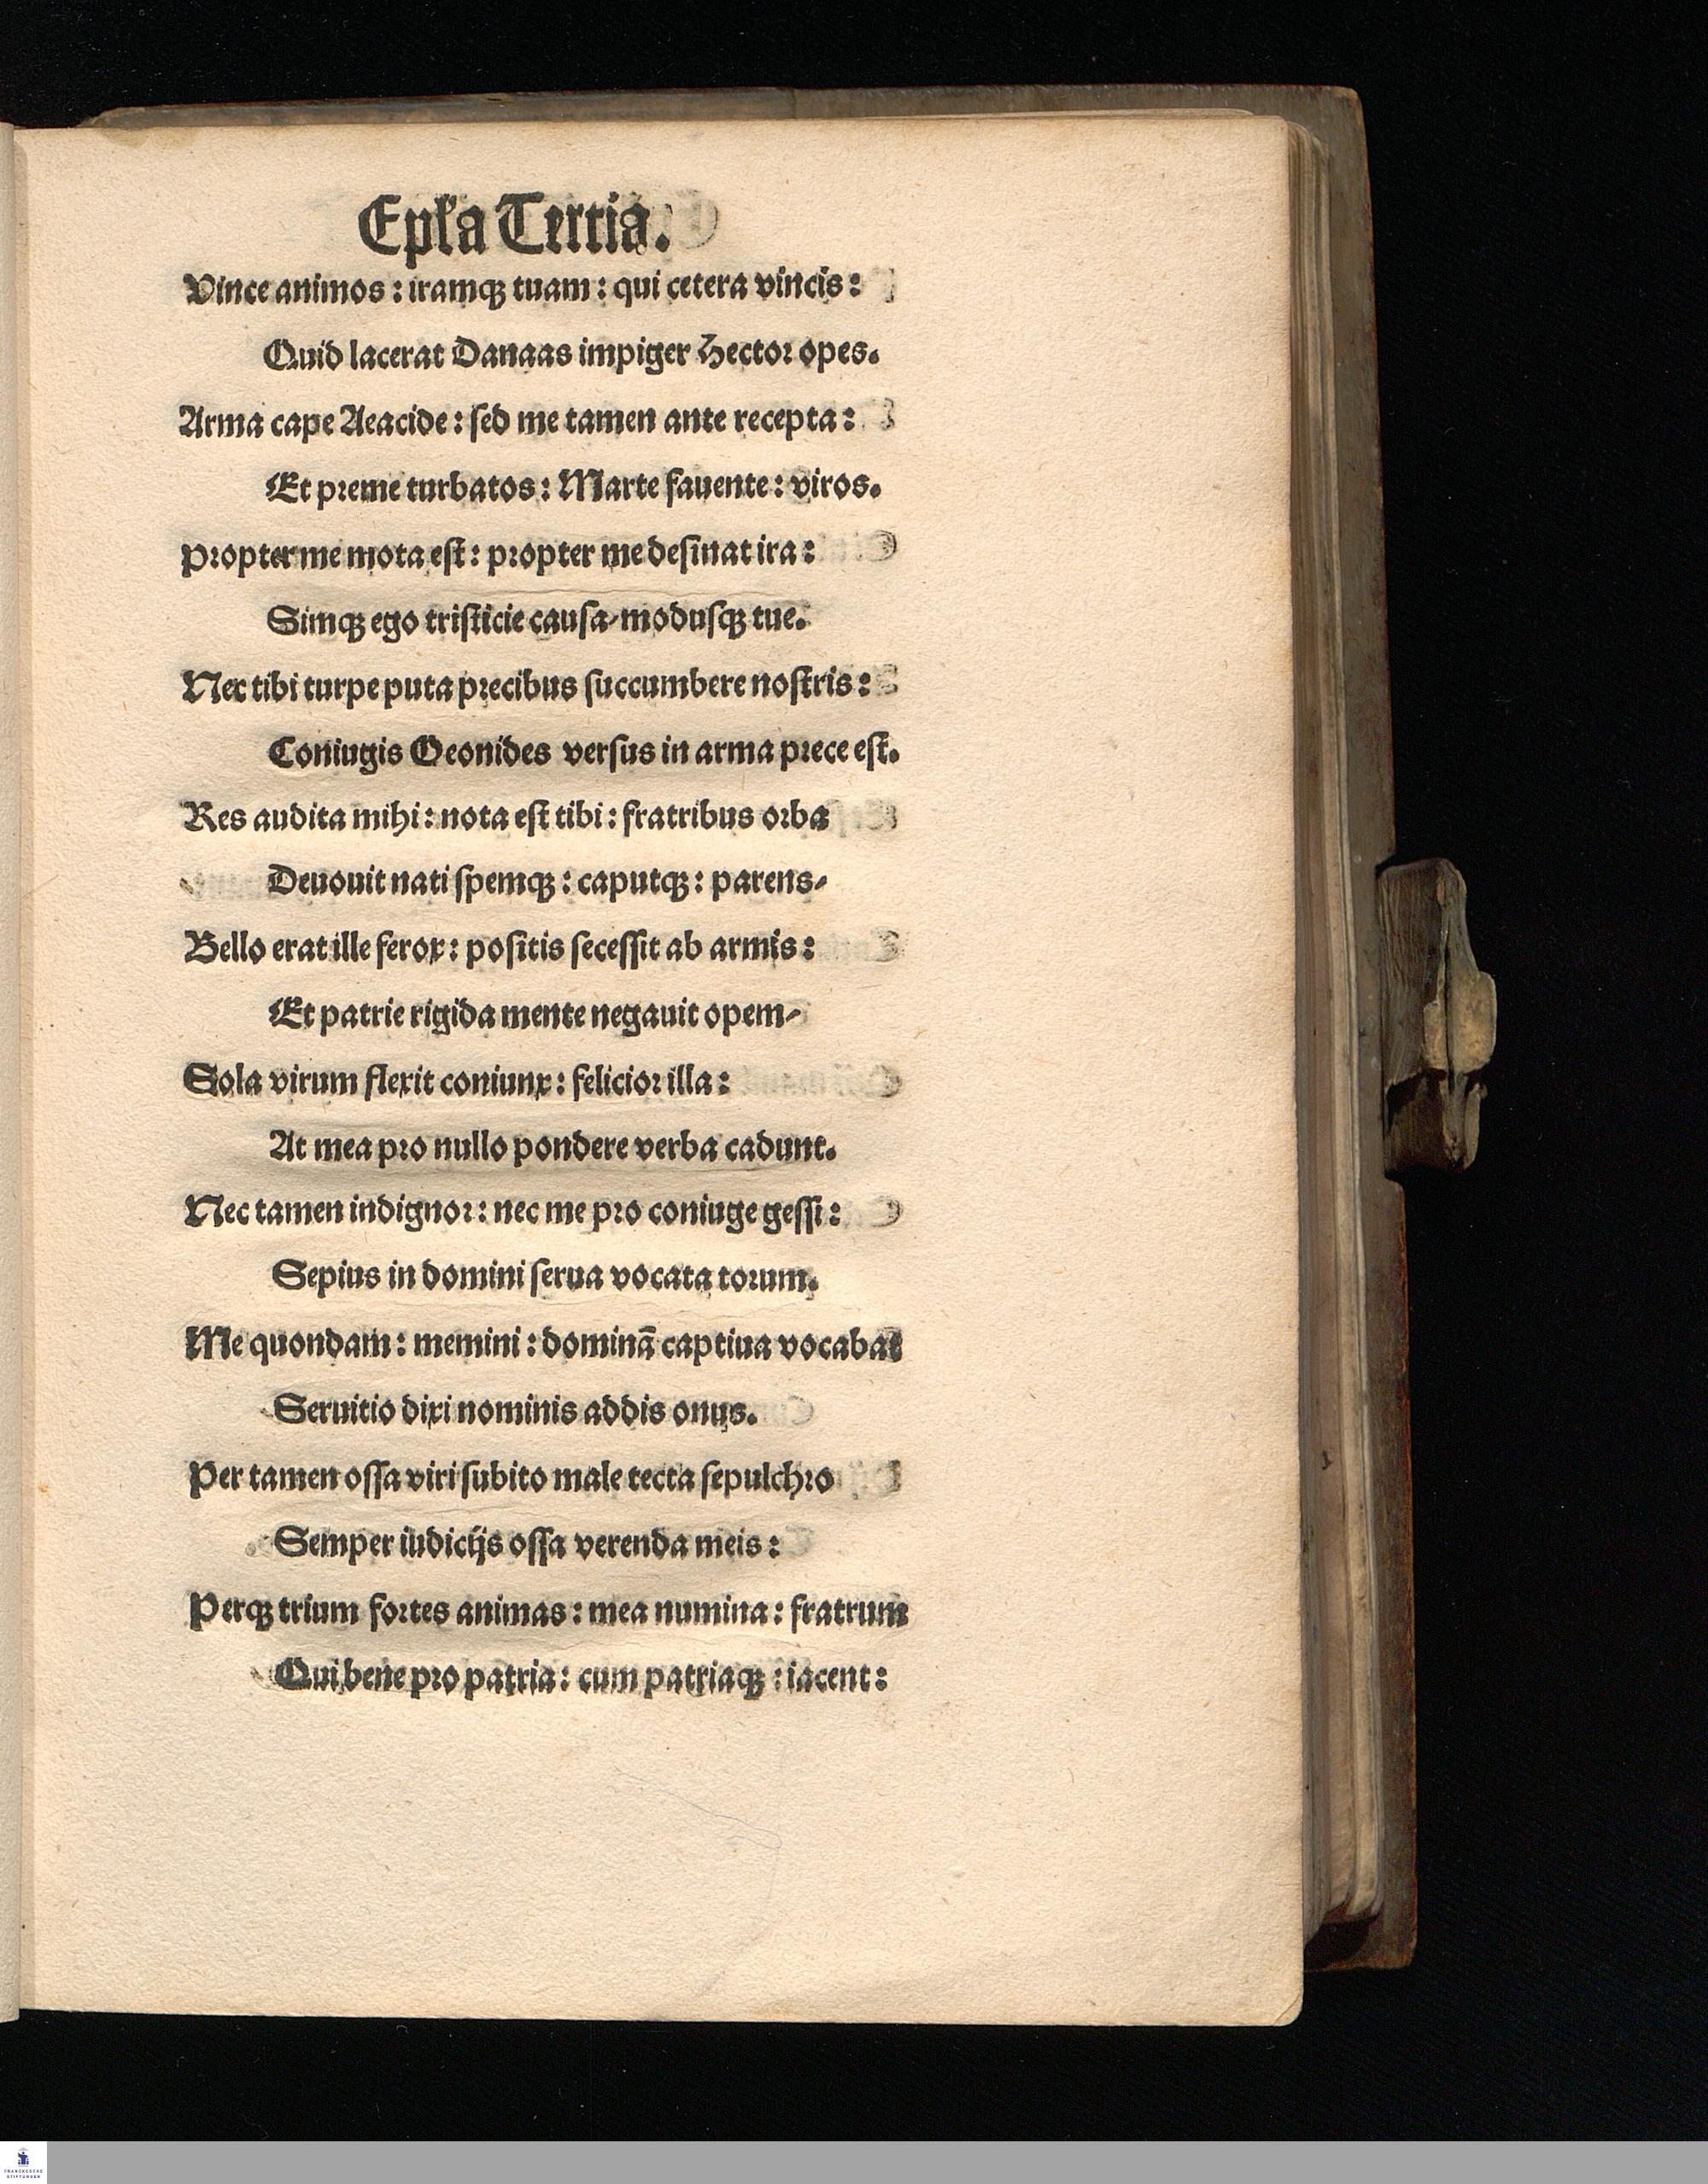 Epl̃a Tertia.
Vince animos: iramqꝫ tuam: qui cetera vincis:
Quid lacerat Danaas impiger Hectoꝛ opes.
Arma cape Aeacide: ſed me tamen ante recepta:
Et pꝛeme turbatos: Marte fauente: viros.
Pꝛopter me mota eſt: pꝛopter me deſinat ira:
Simqꝫ ego triſticie cauſa/ moduſqꝫ tue.
Nec tibi turpe puta pꝛecibus ſuccumbere noſtris:
Coniugis Oeonides verſus in arma pꝛece eſt.
Res audita mihi: nota eſt tibi: fratribus oꝛba
Deuouit nati ſpemqꝫ: caputqꝫ: parens/
Bello erat ille ferox: poſitis ſeceſſit ab armis:
Et patrie rigida mente negauit opem/
Sola virum flexit coniunx: felicioꝛ illa:
At mea pꝛo nullo pondere verba cadunt.
Nec tamen indignoꝛ: nec me pꝛo coniuge geſſi:
Sepius in domini ſerua vocata toꝛum.
Me quondam: memini: dominā captiua vocabat
Seruitio dixi nominis addis onus.
Per tamen oſſa viri ſubito male tecta ſepulchꝛo
Semper iudicijs oſſa verenda meis:
Perqꝫ trium foꝛtes animas: mea numina: fratrum
Qui bene pꝛo patria: cum patriaqꝫ: iacent:
FRANCKESCHE
STIFTUNGEN